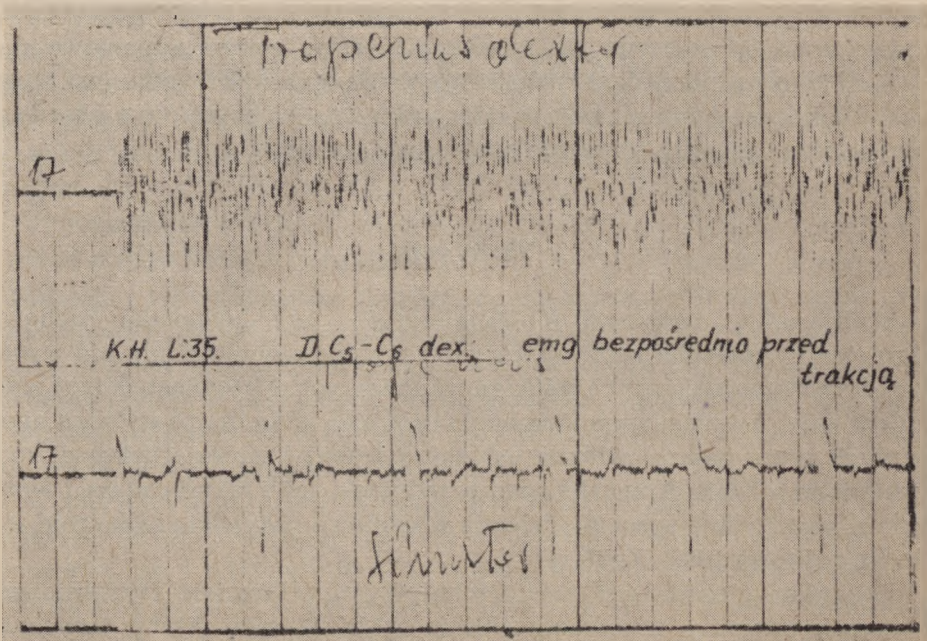 Trapezius dexter
17
K.H. L:35. D. C5-C6 dex. emg bezpośrednio przed
trakcją
17